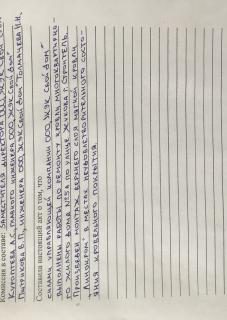 Комиссия в составе: заместителя директора ООО „ЖЭК Свой дом"
Курочкева А.С., главного инженера ООО „ЖЭК Свой дом"
Питрикова В.П., инженера ООО „ЖЭК Свой дом" Толмачева И.Н.
Составила настоящий акт о том, что
силами управляющей компании ООО „ЖЭК Свой дом"
выполнены работы по ремонту кровли многоквартирно-
го жилого дома №5а по улице Жукова г. Строитель.
Произведен монтаж верхнего слоя мягкой кровли
Линокром в местах неудовлетворительного состо-
яния кровельного покрытия.